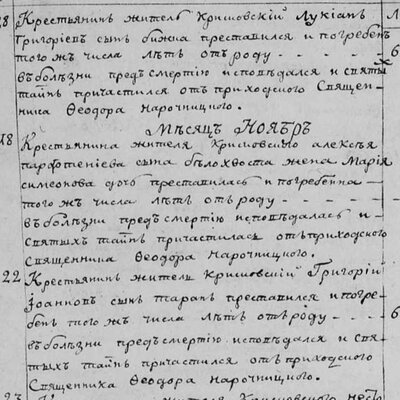 28 Крестьянинъ житель Кришовскій Лукіанъ Л
Григоріевъ сынъ бижна преставился и погребенъ
того жъ числа лѣтъ отъ роду - - - - 6
въ болѣзни предъ смертію исповѣдался и святыхъ
таинъ причастился отъ приходского Священ-
ника Ѳеодора Нарочницкого.
Мѣсяцъ Ноябръ
18
Крестьянина жителя Кришовского алексѣя
парфентіева сына бѣлохвоста жена Марія
симеонова дочь преставилась и погребенна
того жъ числа лѣтъ отъ роду - - - -
въ болѣзни предъ смертію исповѣдалась и
святыхъ таинъ причастилась отъ приходского
священника Ѳеодора Нарочницкого.
22 Крестьянинъ житель Кришовскій Григорій
Іоанновъ сынъ таранъ преставился и погре-
бенъ того жъ числа лѣтъ отъ роду - - - - 6
въ болѣзни предъ смертію исповѣдался и свя-
тыхъ таинъ причастился отъ приходского
Священника Ѳеодора Нарочницкого.
жителя Кришовского